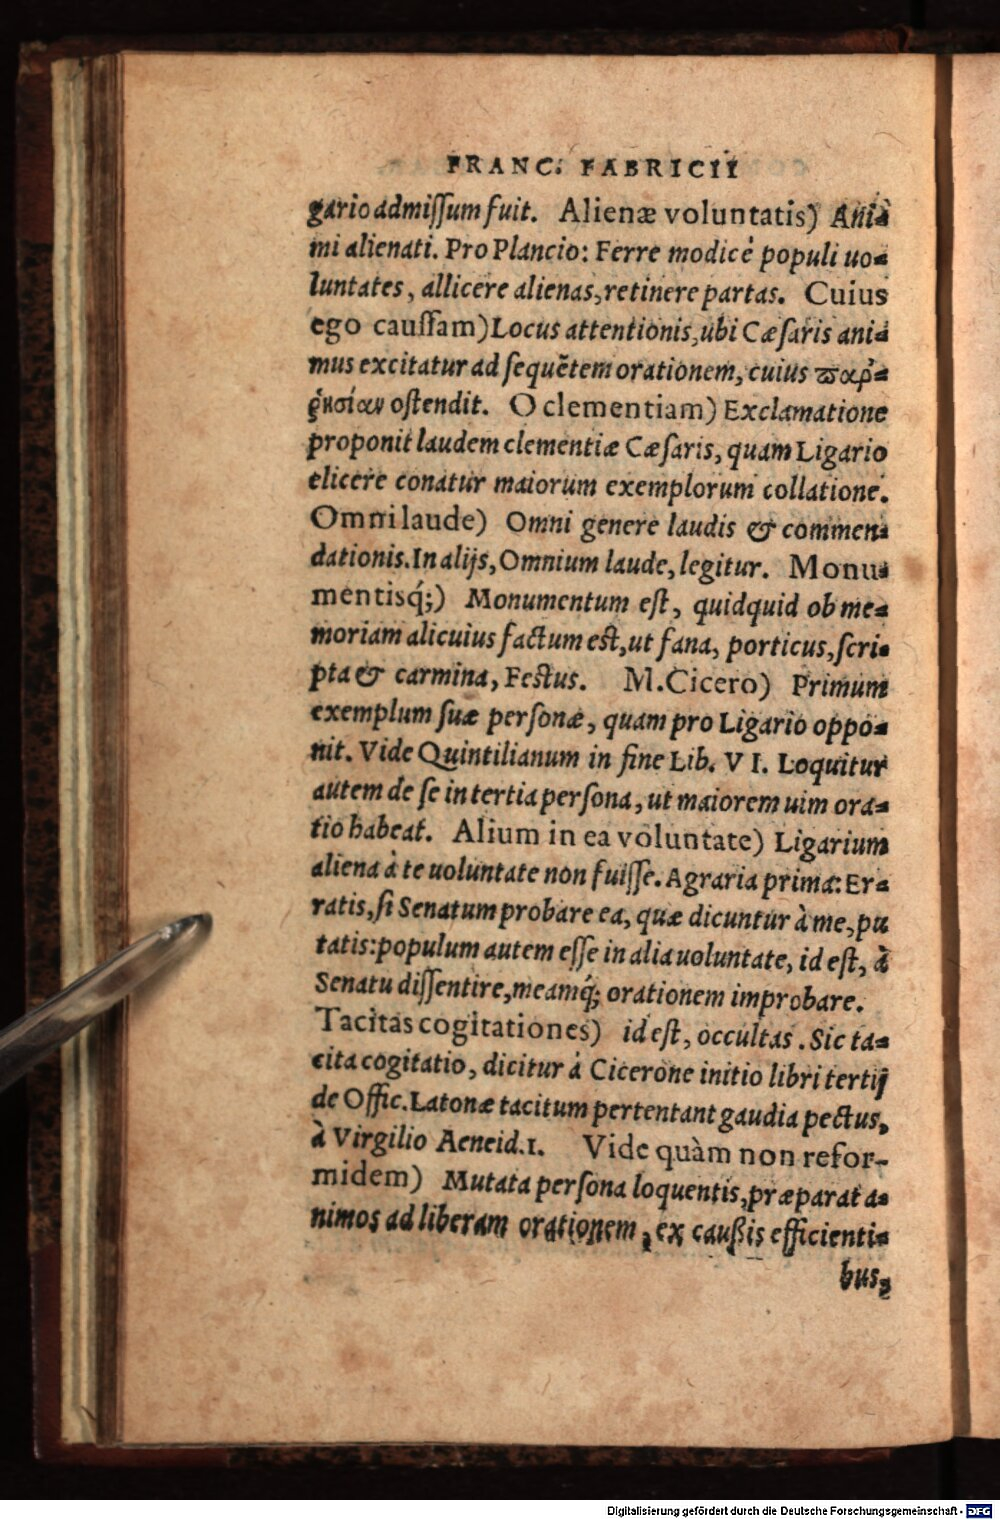 FRANC. FABRICII
gario admiſſum fuit. Alienæ voluntatis) Ani-
mi alienati. Pro Plancio: Ferre modicè populi uo-
luntates, allicere alienas, retinere partas. Cuius
ego cauſſam) Locus attentionis, ubi Cæſaris ani-
mus excitatur ad ſequẽtem orationem, cuius παρ-
ῥησίαν oſtendit. O clementiam) Exclamatione
proponit laudem clementiæ Cæſaris, quam Ligario
elicere conatur maiorum exemplorum collatione.
Omni laude) Omni genere laudis & commen-
dationis. In alijs, Omnium laude, legitur. Monu-
mentisq́;) Monumentum eſt, quidquid ob me-
moriam alicuius factum est, ut fana, porticus, ſcri-
pta & carmina, Feſtus. M. Cicero) Primum
exemplum ſuæ perſonæ, quam pro Ligario oppo-
nit. Vide Quintilianum in fine Lib. VI. Loquitur
autem de ſe in tertia perſona, ut maiorem uim ora-
tio habeat. Alium in ea voluntate) Ligarium
aliena à te uoluntate non fuiſſe. Agraria prima: Er-
ratis, ſi Senatum probare ea, quæ dicuntur à me, pu
tatis: populum autem eſſe in alia uoluntate, id eſt, à
Senatu diſſentire, meamq́; orationem improbare.
Tacitas cogitationes) id eſt, occultas. Sic ta-
cita cogitatio, dicitur à Cicerone initio libri tertij
de Offic. Latonæ tacitum pertentant gaudia pectus,
à Virgilio Aeneid. 1. Vide quàm non refor-
midem) Mutata perſona loquentis, præparat a-
nimos ad liberam orationem, ex cauſsis efficienti-
bus,
Digitalisierung gefördert durch die Deutsche Forschungsgemeinschaft - DFG